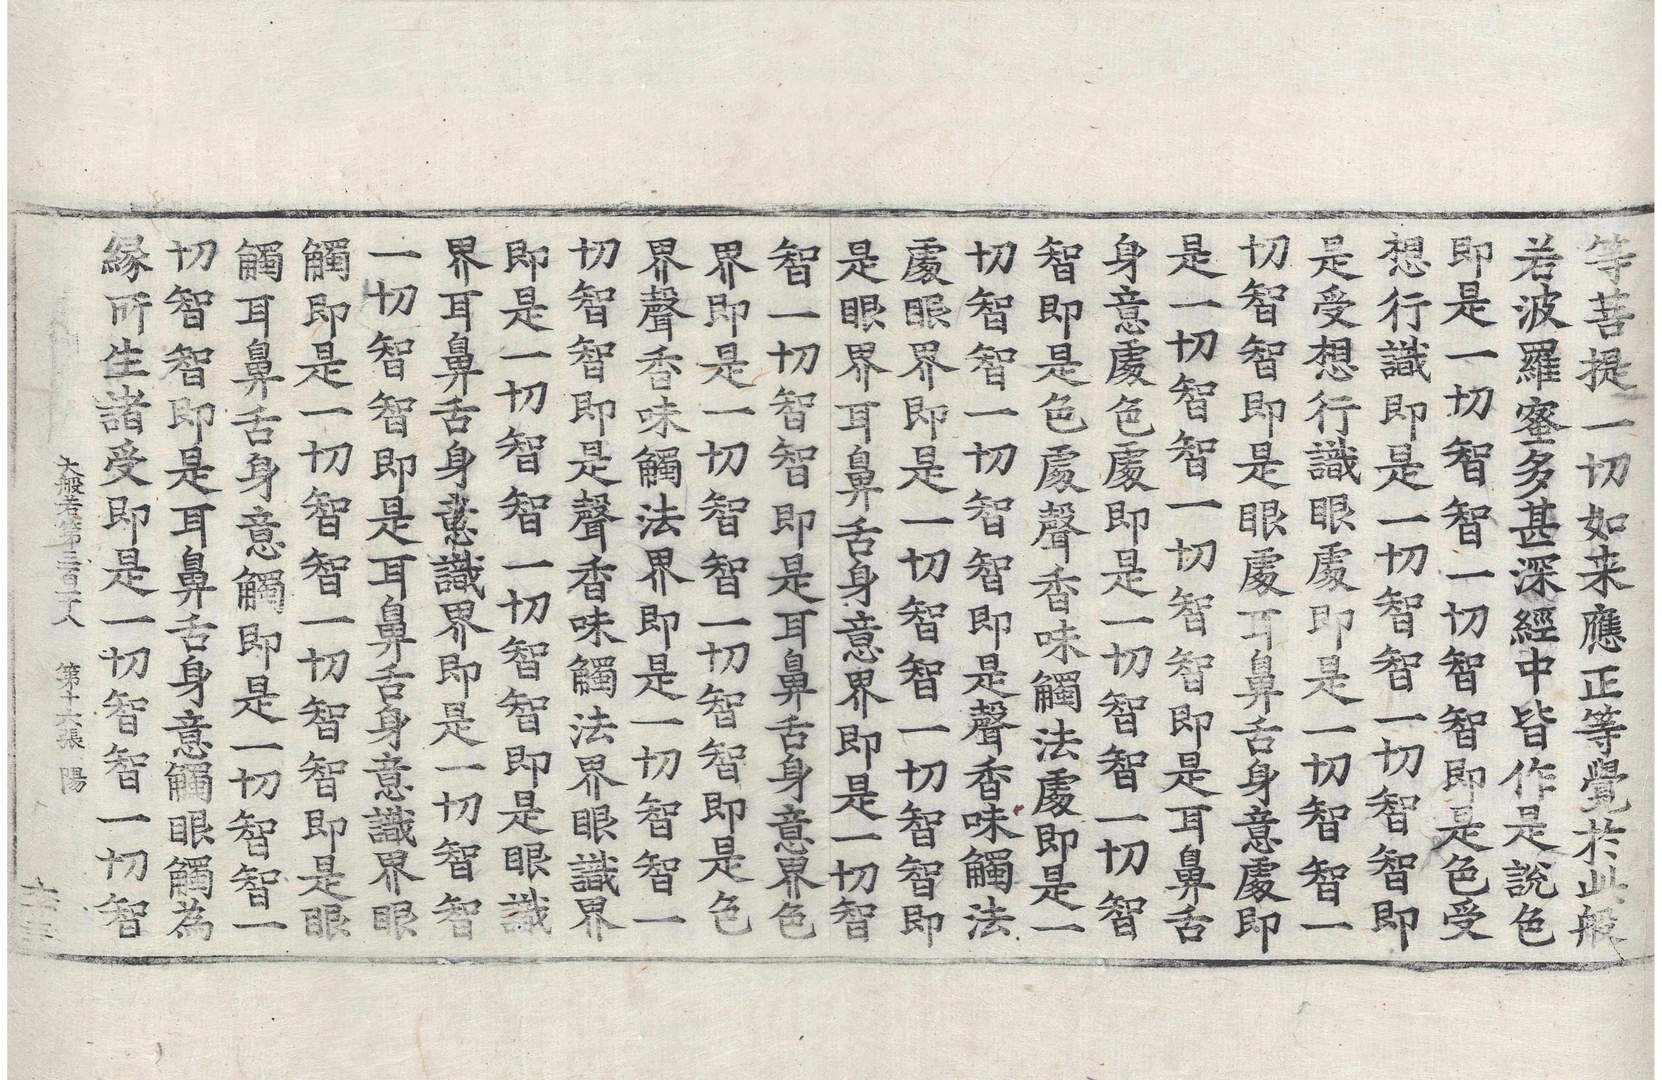 等菩提一切如来應正等覺於此般
若波羅蜜多甚深經中皆作是說色
即是一切智智一切智智即是色受
想行識即是一切智智一切智智即
是受想行識眼處即是一切智智一
切智智即是眼處耳鼻舌身意處即
是一切智智一切智智即是耳鼻舌
身意處色處即是一切智智一切智
智即是色處聲香味觸法處即是一
切智智一切智智即是聲香味觸法
處眼界即是一切智智一切智智即
是眼界耳鼻舌身意界即是一切智
智一切智智即是耳鼻舌身意界色
界即是一切智智一切智智即是色
界聲香味觸法界即是一切智智一
切智智即是聲香味觸法界眼識界
即是一切智智一切智智即是眼識
界耳鼻舌身意識界即是一切智智
一切智智即是耳鼻舌身意識界眼
觸即是一切智智一切智智即是眼
觸耳鼻舌身意觸即是一切智智一
切智智即是耳鼻舌身意觸眼觸為
緣所生諸受即是一切智智一切智
大般若第三百二十八 第十六張 陽